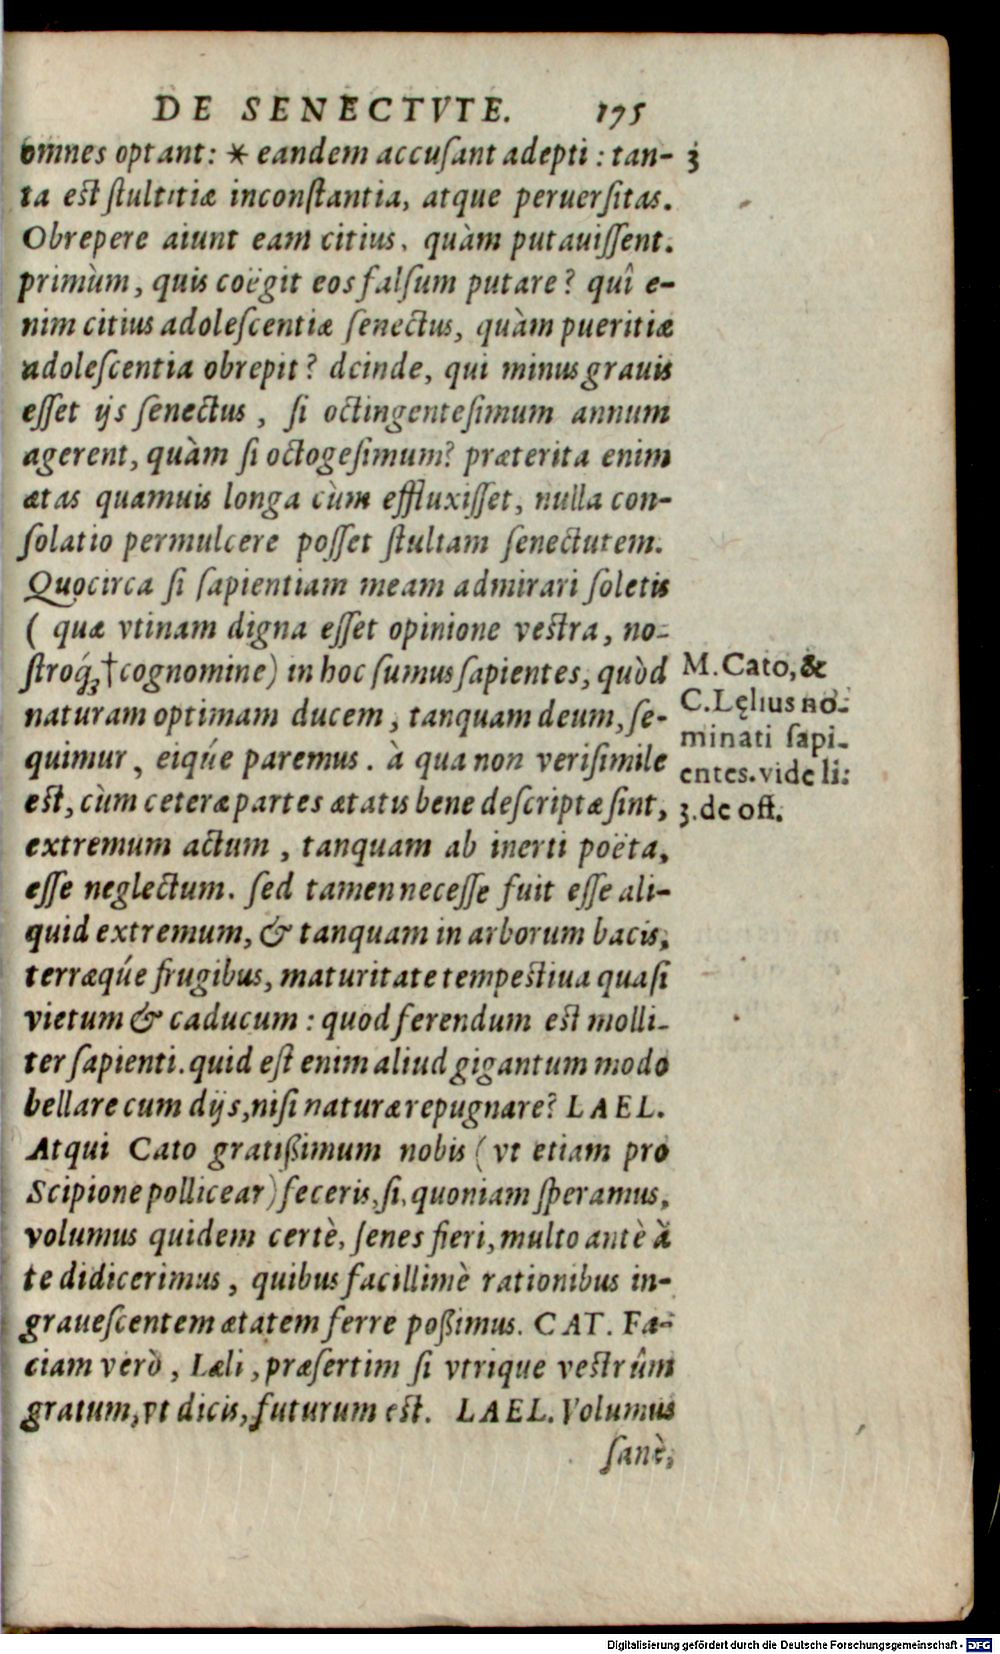 DE SENECTVTE. 175
omnes optant: * eandem accuſant adepti: tan- 3
ta est ſtultitiæ inconſtantia, atque peruerſitas.
Obrepere aiunt eam citius, quàm putauiſſent.
primùm, quis coëgit eos falſum putare? quî e-
nim citius adoleſcentiæ ſenectus, quàm pueritiæ
adoleſcentia obrepit? deinde, qui minus grauis
eſſet ijs ſenectus, ſi octingenteſimum annum
agerent, quàm ſi octogeſimum? præterita enim
ætas quamuis longa cùm effluxiſſet, nulla con-
ſolatio permulcere poſſet ſtultam ſenectutem.
Quocirca ſi ſapientiam meam admirari ſoletis
( quæ vtinam digna eſſet opinione vestra, no-
ſtroq́; †cognomine) in hoc ſumus ſapientes, quòd
naturam optimam ducem, tanquam deum, ſe-
quimur, eiq́ue paremus. à qua non veriſimile
est, cùm ceteræ partes ætatis bene deſcriptæ ſint,
extremum actum, tanquam ab inerti poëta,
eſſe neglectum. ſed tamen neceſſe fuit eſſe ali-
quid extremum, & tanquam in arborum bacis,
terræq́ue frugibus, maturitate tempestiua quaſi
vietum & caducum: quod ferendum est molli-
ter ſapienti. quid eſt enim aliud gigantum modo
bellare cum dijs, niſi naturæ repugnare? LAEL.
Atqui Cato gratißimum nobis (vt etiam pro
Scipione pollicear) feceris, ſi, quoniam ſperamus,
volumus quidem certè, ſenes fieri, multo antè à
te didicerimus, quibus facillimè rationibus in-
graueſcentem ætatem ferre poßimus. CAT. Fa-
ciam verò, Læli, præſertim ſi vtrique vestrûm
gratum, vt dicis, futurum est. LAEL. Volumus
ſanè,
M. Cato, &
C. Lęlius no-
minati ſapi-
entes. vide li:
3. de off.
Digitalisierung gefördert durch die Deutsche Forschungsgemeinschaft - DFG